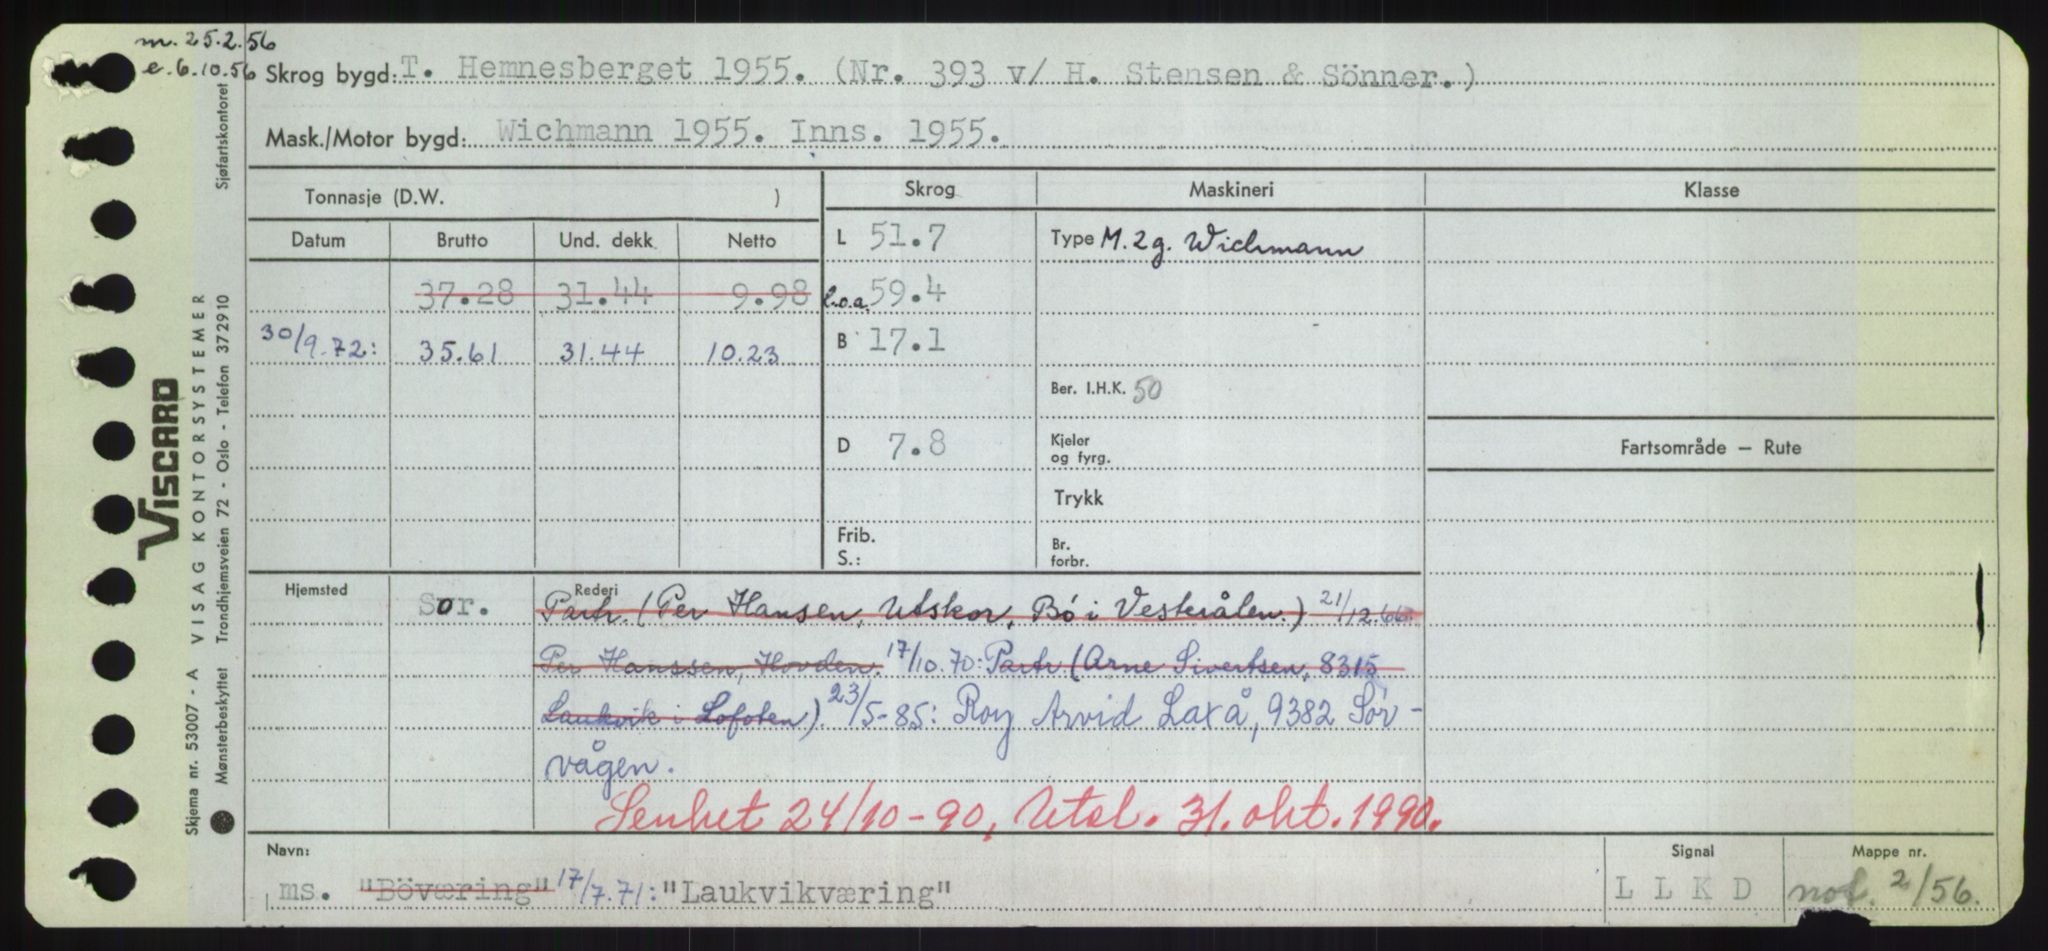 m. 25.2.56
e. 6.10.56 Skrog bygd: T. Hemnesberget 1955. (Nr. 393 v/ H. Stensen & Sönner.)
Mask./Motor bygd: Wichmann 1955. Inns. 1955.
Tonnasje (D.W. ) Skrog Maskineri Klasse
Datum Brutto Und. dekk Netto L 51.7 Type M. 2 g. Wichmann
37.28 31.44 9.98 l.o.a. 59.4
30/9.72: 35.61 31.44 10.23 B 17.1
Ber. I.H.K. 50
D 7.8 Kjeler og fyrg. Fartsområde — Rute
Trykk
Frib. S.: Br. forbr.
Hjemsted Sor. Rederi
Partr. (Per Hansen, Utskor, Bö i Vesterålen.) 21/12.66:
Per Hanssen, Hovden. 17/10.70: Partr (Arne Sivertsen, 8315
Laukvik i Lofoten) 23/5-85: Roy Arvid Laxå, 9382 Sør-
vågen.
Senket 24/10-90, Utsl. 31. okt. 1990.
Navn: Signal Mappe nr.
ms. "Böværing" 17/7.71: "Laukvikværing" L L K D not. 2/56.
Sjøfartskontoret
VISCARD
VISAG KONTORSYSTEMER
Skjema nr. 53007 - A
Mønsterbeskyttet Trondhjemsveien 72 - Oslo - Telefon 372910